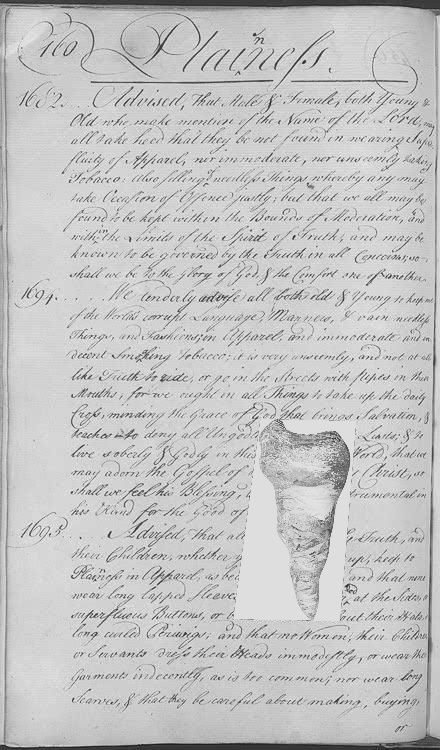 160 Plainness.
1682... Advised, that Male & Female, both Young &
Old who make mention of the Name of the Lord, may
all take heed that they be not found in wearing Supe
fluity of Apparel, nor immoderate, nor unseemly taking
Tobacco: also selling needless Things whereby any may
take Occasion of Offence justly; but that we all may be
found to be kept within the Bounds of Moderation, and
within the Limits of the Spirit of Truth, and may be
known to be governed by the Truth in all Concerns, so
shall we be to the Glory of God, & the Comfort one of another.
1694..... We tenderly advise all both old & Young to keep
of the World's corrupt Language, Manners, & vain needless
Things, and Fashions, in Apparel, and immoderate and in
decent Smoking Tobacco; it is very unseemly, and not at all
like Truth to ride, or go in the Streets with pipes in their
Mouths, for we ought in all Things to take up the daily
Cross, minding the Grace of God that brings Salvation, &
teaches to deny all Ungod Lusts, & to
live soberly & Godly in this World, that we
may adorn the Gospel of Christ, so
shall we feel his Blessing, strumental in
his Hand for the Good of
1695... Advised, That all Truth, and
their Children, whether up, keep to
Plainness in Apparel, as be and that none
wear long lapped Sleeves at the Sides,
superfluous Buttons, or out their Hats,
long curled Periwigs, and that no Women, their Children
or Servants dress their Heads immodestly, or wear their
Garments indecently, as is too common; nor wear long
Scarves, & that they be careful about making, buying,
or